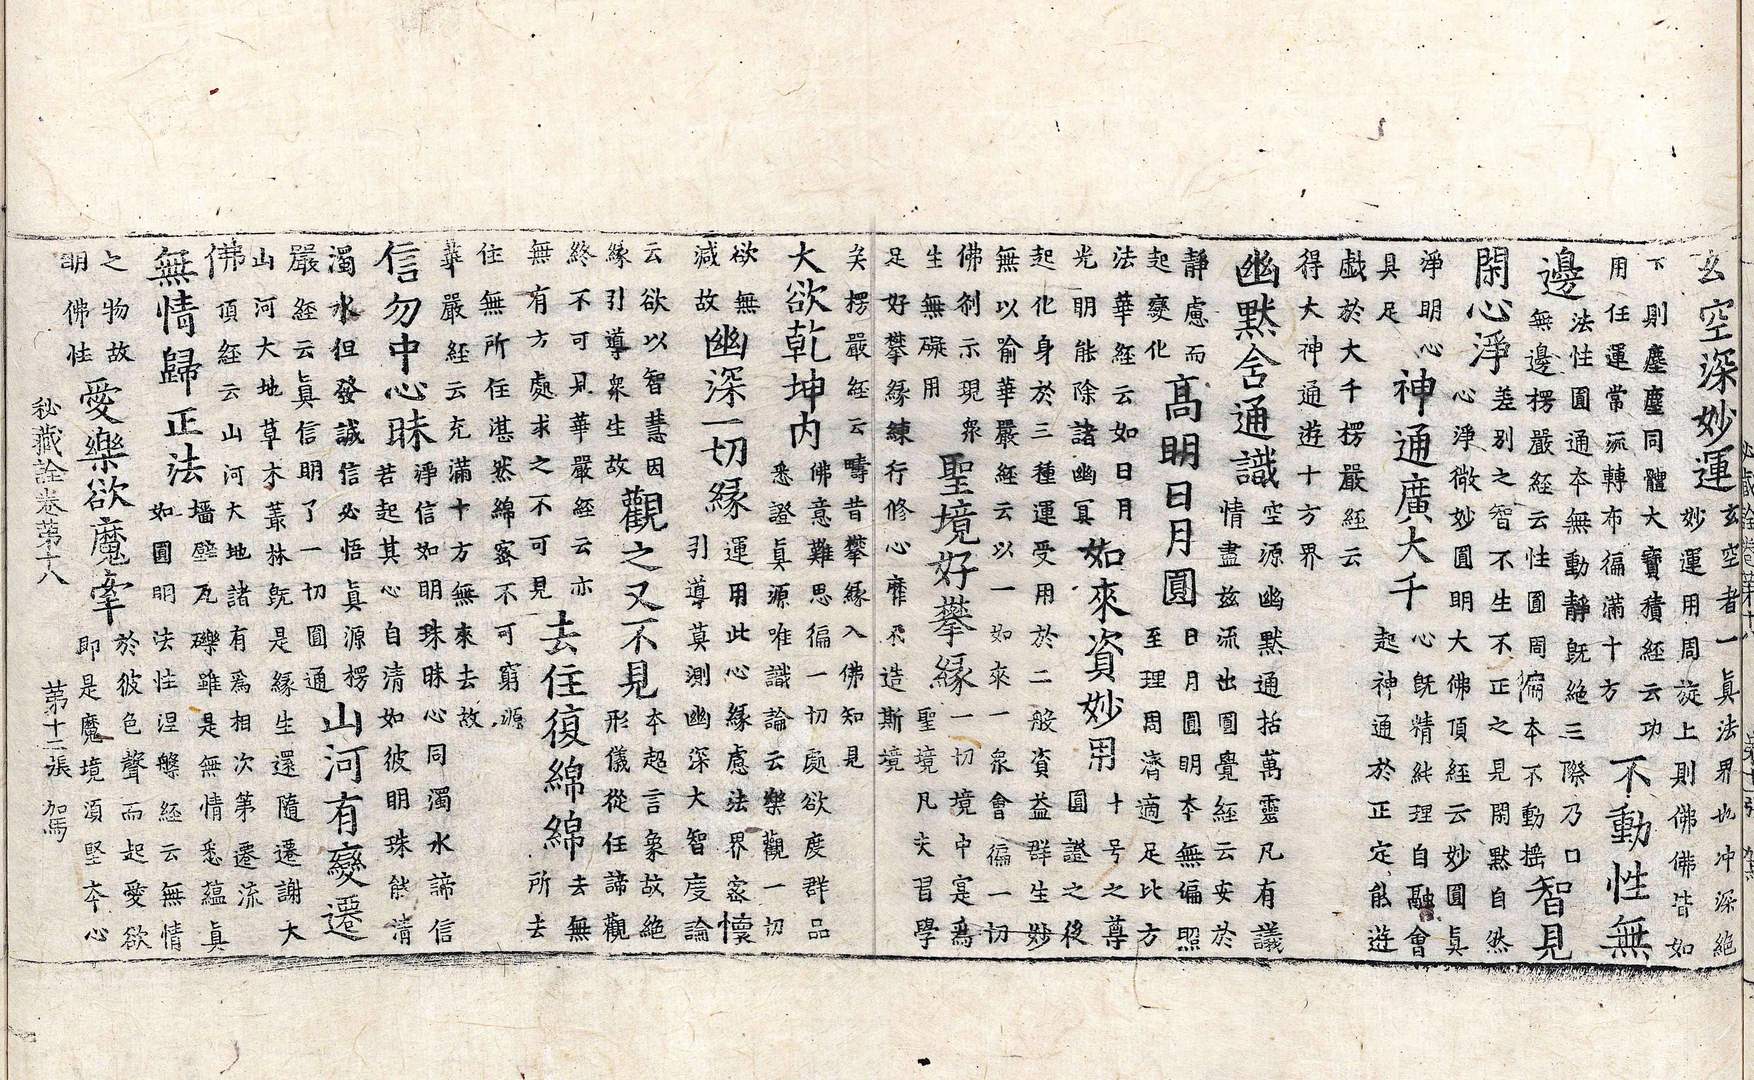 玄空深妙運
玄空者一真法界也冲深絶
妙運用周旋上則佛佛皆如
下則塵塵同體大寶積經云功
用任運常流轉布徧滿十方
不動性無
邊
法性圓通本無動靜旣絶三際乃口
無邊楞嚴經云性圓周徧本不動搖
智見
閑心淨
差别之智不生不正之見閑默自然
心淨微妙圓明大佛頂經云妙圓眞
淨明心
具足
神通廣大千
心旣精純理自融會
起神通於正定能遊
戯於大千楞嚴經云
得大神通遊十方界
幽默含通識
空源幽默通括萬靈凡有議
情盡兹流出圓覺經云安於
静慮而
起變化
高明日月圓
日月圓明本無偏照
至理周濟適足比方
法華經云如日月
光明能除諸幽冥
如來資妙用
十号之尊
圓證之後
起化身於三種運受用於二般資益群生妙
無以喻華嚴經云以一如來一衆會徧一切
佛刹示現衆
生無礙用
聖境好攀緣
一切境中寔爲
聖境凡夫習學
足好攀緣練行修心靡不造斯境
矣楞嚴經云疇昔攀緣入佛知見
大欲乾坤内
佛意難思徧一切處欲度群品
悉證眞源唯識論云樂觀一切
欲無
減故
幽深一切緣
運用此心緣慮法界宻懷
引導莫測幽深大智度論
云欲以智慧因
緣引導衆生故
觀之又不見
本超言象故絶
形儀從任諦觀
終不可見華嚴經云亦
無有方處求之不可見
去住復綿綿
去無
所去
住無所住湛然綿密不可窮源
華嚴經云充滿十方無來去故
信勿中心昧
淨信如明珠昧心同濁水諦信
若起其心自清如彼明珠能清
濁水但發誠信必悟眞源楞
嚴經云眞信明了一切圓通
山河有變遷
山河大地草木叢林旣是緣生還隨遷謝大
佛頂經云山河大地諸有爲相次第遷流
無情歸正法
墻壁瓦礫雖是無情悉藴眞
如圓明法性涅槃經云無情
之物故
明佛性
愛樂欲魔牽
於彼色聲而起愛欲
即是魔境須堅本心
秘藏詮卷第十八 第十二張 駕